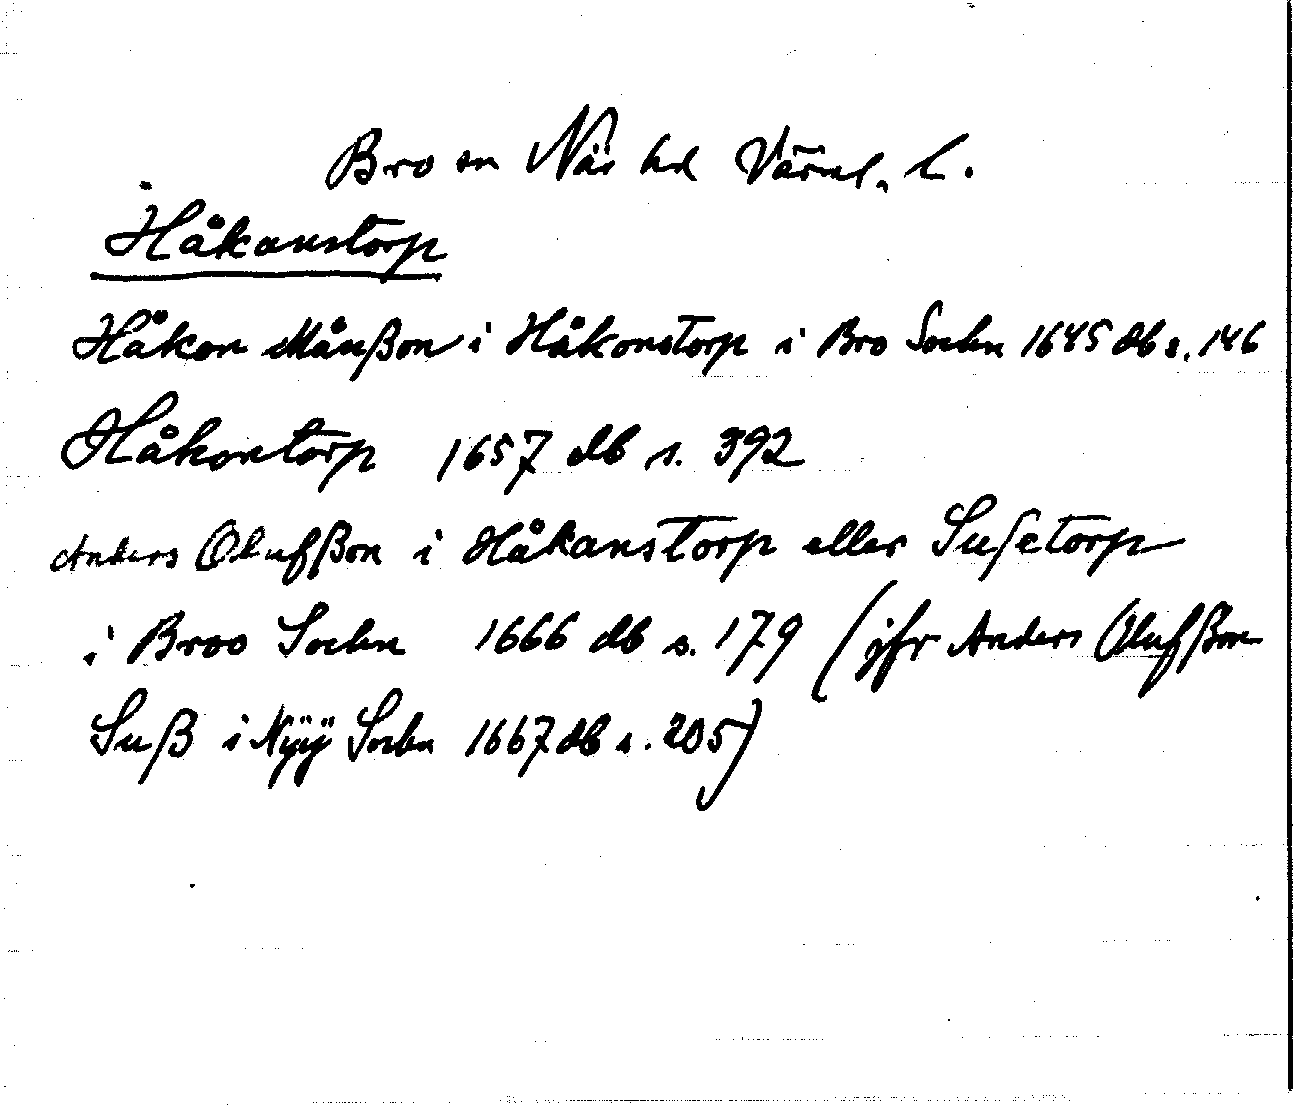 Bro sn Näs hd Värml. L.
Håkanstorp
Håkon Månßon i Håkonstorp i Bro Sochn 1645 db s. 146
Håkontorp 1657 db s. 392
Anders Olufßon i Håkanstorp eller Susetorp
i Broo Sochn 1666 db s. 179 (jfr Anders Olufßon
Suß i Nÿÿ Sochn 1667 db s. 205)